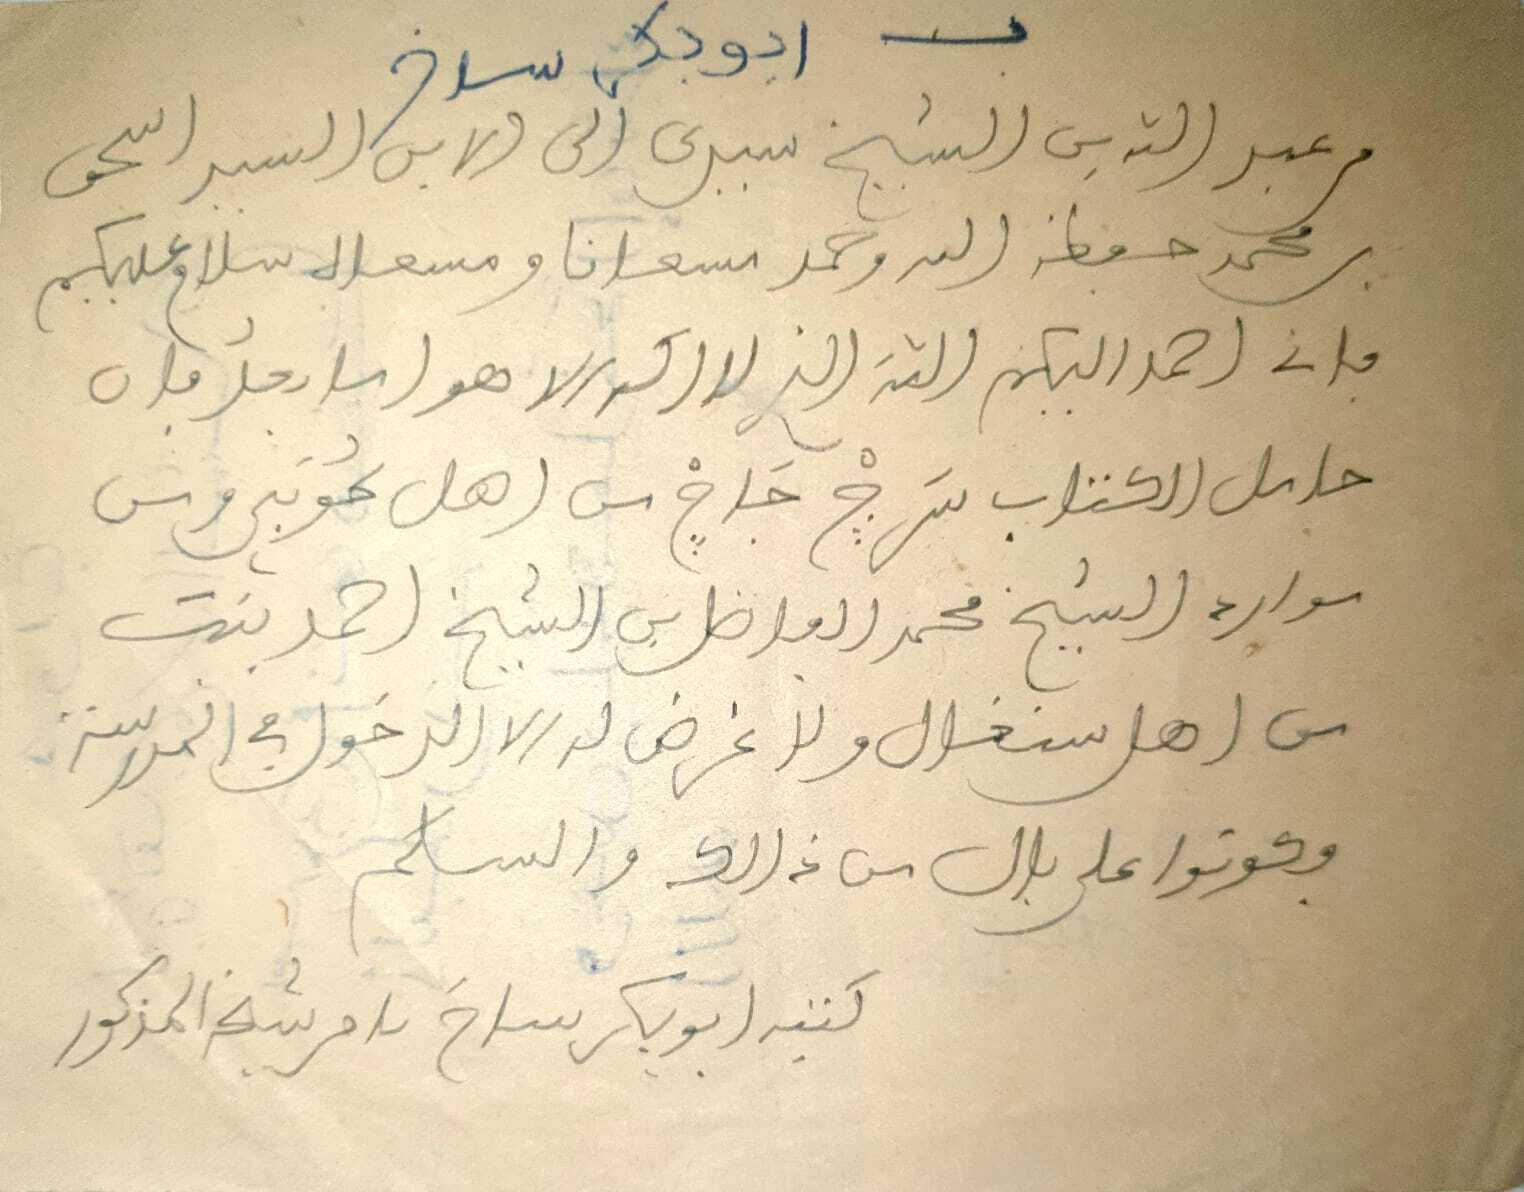 ابوبكر ساخ
من عبد الله بن الشيخ سيدي الى الابن السيد اسحق
بن محمد حفظه الله وحمد مسعانا ومسعاه سلام عليكم
فاني احمد اليكم الله الذي لا اله الا هو اما بعد فان
حامل الكتاب سَرِڃْ جَاخْ من اهل من
موارد الشيخ محمد الفاضل بن الشيخ احمد بنب
من اهل سنغال ولا غرض له الا الدخول في المدرسة
وكونوا على بال من ذالك والسلم
كتبه ابوبكر ساخ بامر شيخه المذكور